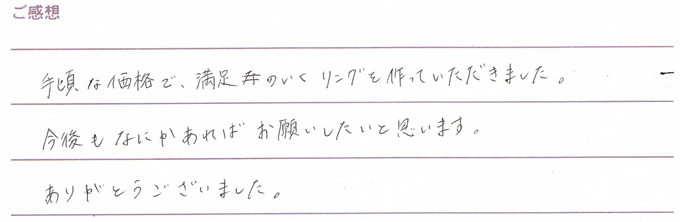 ご感想
手頃な価格で、満足のいくリングを作っていただきました。
今後もなにかあればお願いしたいと思います。
ありがとうございました。